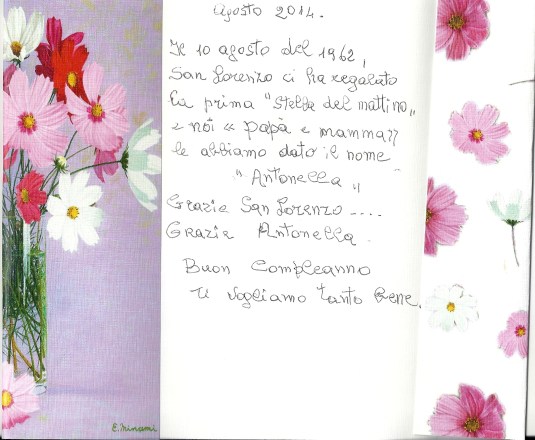 Agosto 2014.
Il 10 agosto del 1962,
San Lorenzo ci ha regalato
la prima "stella del mattino"
e noi "papà e mamma"
le abbiamo dato il nome
"Antonella"
Grazie San Lorenzo ....
Grazie Antonella.
Buon Compleanno
ti vogliamo tanto bene.
E. Minami